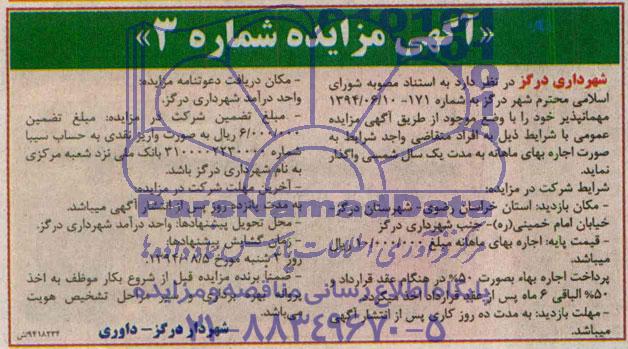 «آگهی مزایده شماره ۳»
شهرداری درگز در نظر دارد به استناد مصوبه شورای
اسلامی محترم شهر درگز به شماره ۱۷۱- ۱۳۹۴/۰۶/۱۰
مهمانپذیر خود را با وضع موجود از طریق آگهی مزایده
عمومی با شرایط ذیل به افراد متقاضی واجد شرایط به
صورت اجاره بهای ماهانه به مدت یک سال شمسی واگذار
نماید.
شرایط شرکت در مزایده:
- مکان بازدید: استان خراسان رضوی - شهرستان درگز-
خیابان امام خمینی(ره)- جنب شهرداری درگز
- قیمت پایه: اجاره بهای ماهانه مبلغ ریال
میباشد.
پرداخت اجاره بهاء بصورت ۵۰٪ در هنگام عقد قرارداد و
۵۰٪ الباقی ۶ ماه پس از عقد قرارداد اخذ میگردد.
- مهلت بازدید: به مدت ده روز کاری پس از انتشار آگهی
میباشد.
- مکان دریافت دعوتنامه مزایده:
واحد درآمد شهرداری درگز.
- مبلغ تضمین شرکت در مزایده: مبلغ تضمین
۶/۰۰۰/۰۰۰ ریال به صورت واریز نقدی به حساب سیبا
شماره بانک ملی نزد شعبه مرکزی
به نام شهرداری درگز باشد.
- آخرین مهلت شرکت در مزایده:
به مدت پانزده روز پس از انتشار آگهی میباشد.
- محل تحویل پیشنهادها: واحد درآمد شهرداری درگز.
- زمان گشایش پیشنهادها:
روز شنبه مورخ ۱۳۹۴/۸/۵
- ضمناً برنده مزایده قبل از شروع بکار موظف به اخذ
پروانه بهره برداری و سیر مراحل تشخیص هویت
میباشد.
شهردار درگز- داوری
۹۴۱۸۲۳۴/ش
ParsNamadData
مرکز فرآوری اطلاعات پارس نماد داده ها
پایگاه اطلاع رسانی مناقصه و مزایده
۰۲۱-۸۸۳۴۹۶۷۰-۵